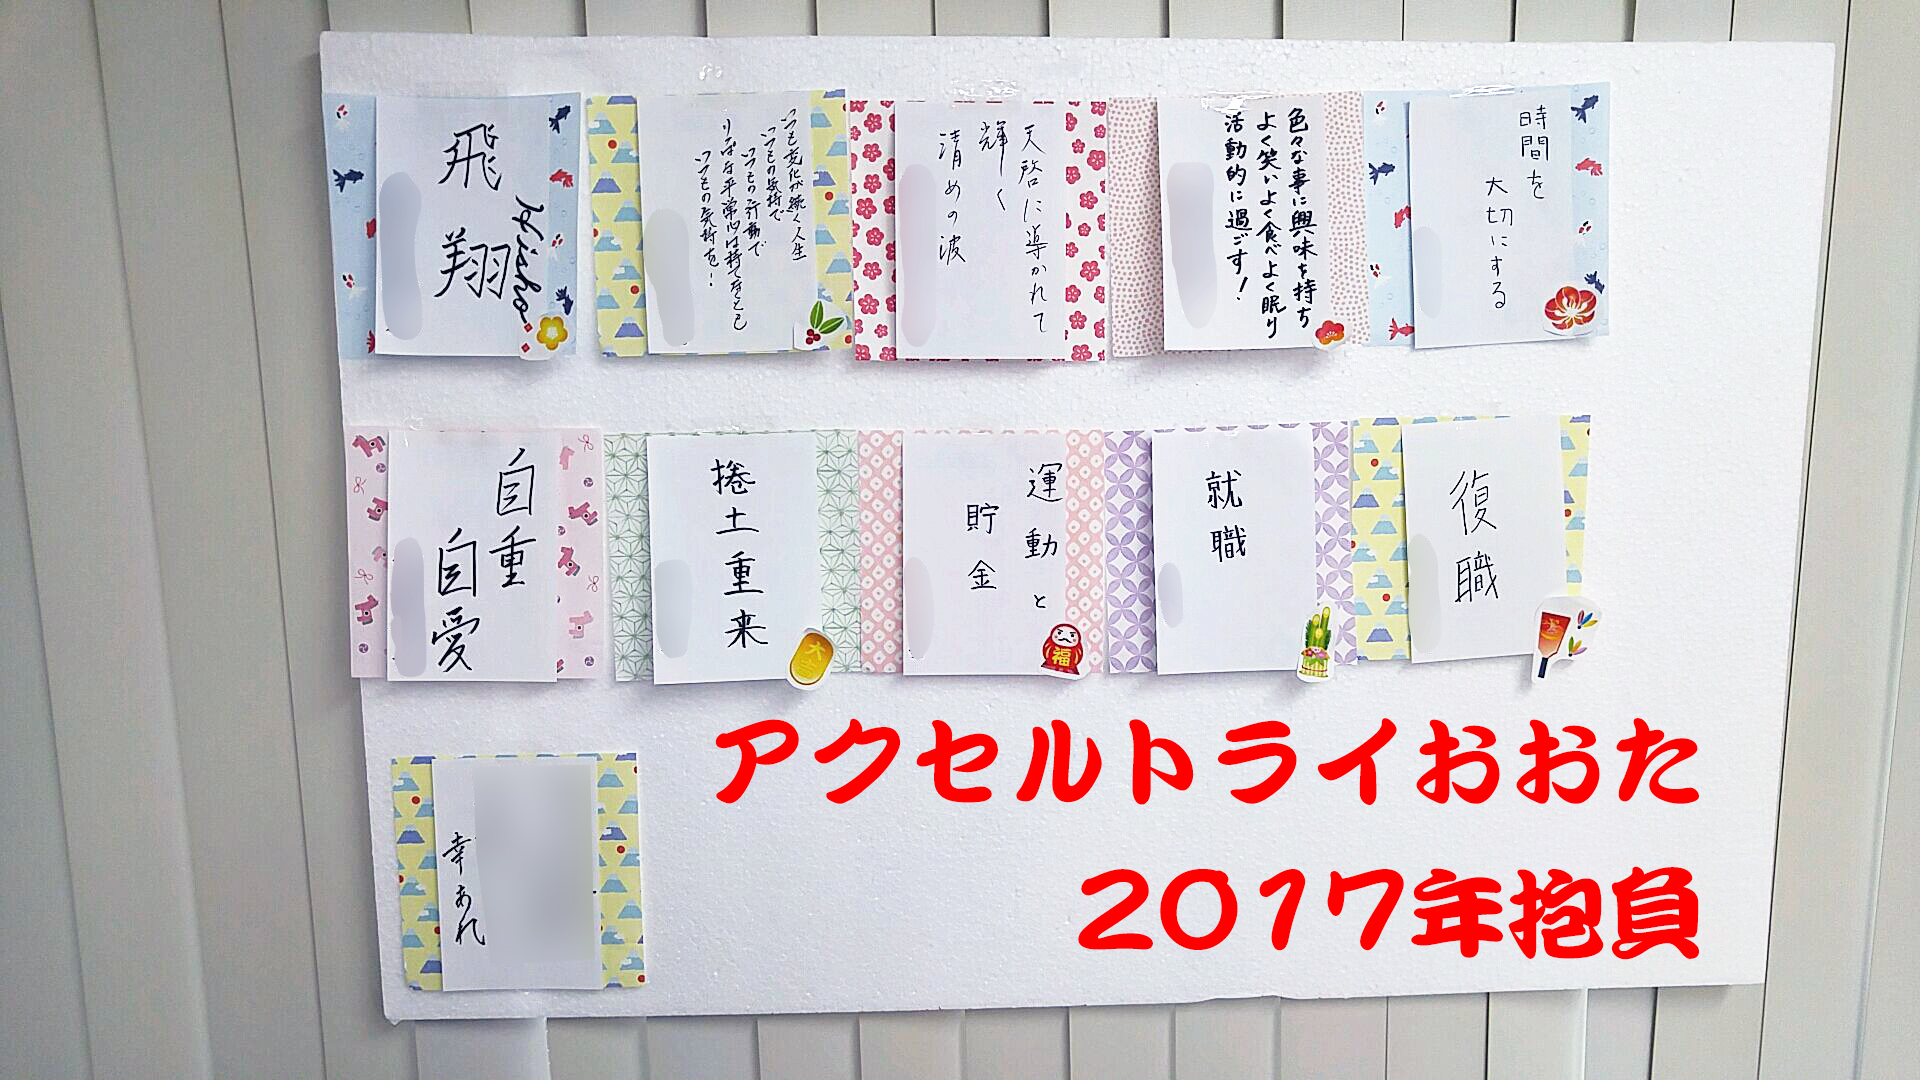 飛翔
Hisho
いつも変化が続く人生
いつもの気持で
いつもの行動で
りっぱな平常心は持てなくとも
いつもの気持を！
天啓に導かれて
輝く
清めの波
色々な事に興味を持ち
よく笑いよく食べよく眠り
活動的に過ごす！
時間を
大切にする
自重
自愛
捲土重来
運動と
貯金
就職
復職
大吉
福
幸あれ
アクセルトライおおた
2017年抱負